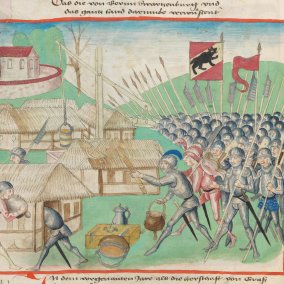 Das die von Bern Swarzenburg und
das gantz land darumbe verwůstent
In dem vorgenanten Jare als die herschafft von